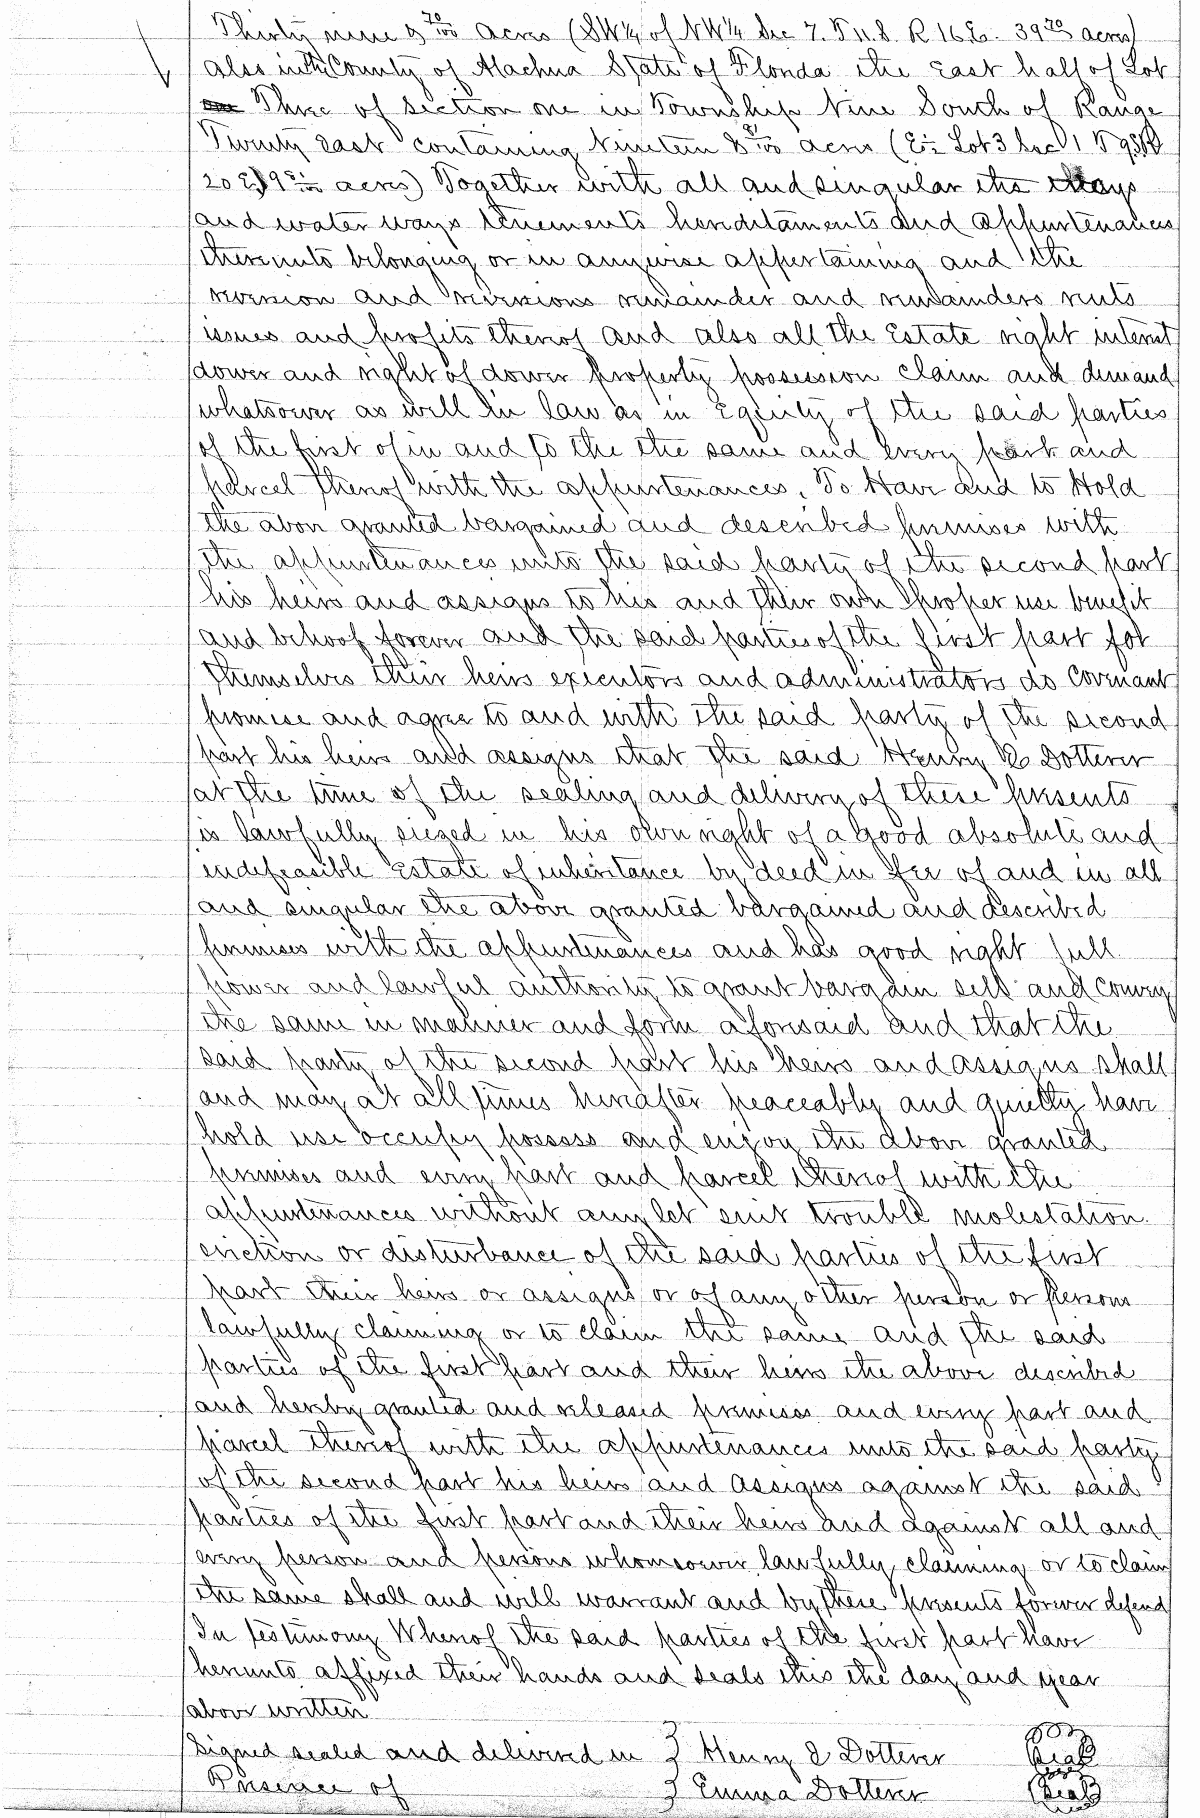 Thirty nine & 70/100 acres (SW¼ of NW¼ Sec 7. T 11. S. R 16. E. 39 70/100 acres)
also in the County of Alachua State of Florida the East half of Lot
Three of section one in Township Nine South of Range
Twenty East containing Nineteen & acres (E½ Lot 3 Sec 1 T 9 S R
20 E 19 acres) Together with all and singular the ways
and water ways tenements hereditaments and appurtenances
thereunto belonging or in anywise appertaining and the
reversion and reversions remainder and remainders rents
issues and profits thereof and also all the Estate right interest
dower and right of dower property possession claim and demand
whatsoever as well in law as in Equity of the said parties
of the first of in and to the the same and every part and
parcel thereof with the appurtenances. To Have and to Hold
the above granted bargained and described premises with
the appurtenances unto the said party of the second part
his heirs and assigns to his and their own proper use benefit
and behoof forever and the said parties of the first part for
themselves their heirs executors and administrators do Covenant
promise and agree to and with the said party of the second
part his heirs and assigns that the said Henry E Dotterer
at the time of the sealing and delivery of these presents
is lawfully siezed in his own right of a good absolute and
indefeasible Estate of inheritance by deed in fee of and in all
and singular the above granted bargained and described
premises with the appurtenances and has good right full
power and lawful authority to grant bargain sell and convey
the same in manner and form aforesaid and that the
said party of the second part his heirs and assigns shall
and may at all times hereafter peaceably and quietly have
hold use occupy possess and enjoy the above granted
premises and every part and parcel thereof with the
appurtenances without any let suit trouble molestation
eviction or disturbance of the said parties of the first
part their heirs or assigns or of any other person or Persons
lawfully claiming or to claim the same and the said
parties of the first part and their heirs the above described
and hereby granted and released premises and every part and
parcel thereof with the appurtenances unto the said party
of the second part his heirs and assigns against the said
parties of the first part and their heirs and against all and
every person and persons whomsoever lawfully claiming or to claim
the same shall and will warrant and by these presents forever defend
In testimony Whereof the said parties of the first part have
hereunto affixed their hands and seals this the day and year
above written
Signed sealed and delivered in } Henry E Dotterer (Seal)
Presence of } Emma Dotterer (Seal)